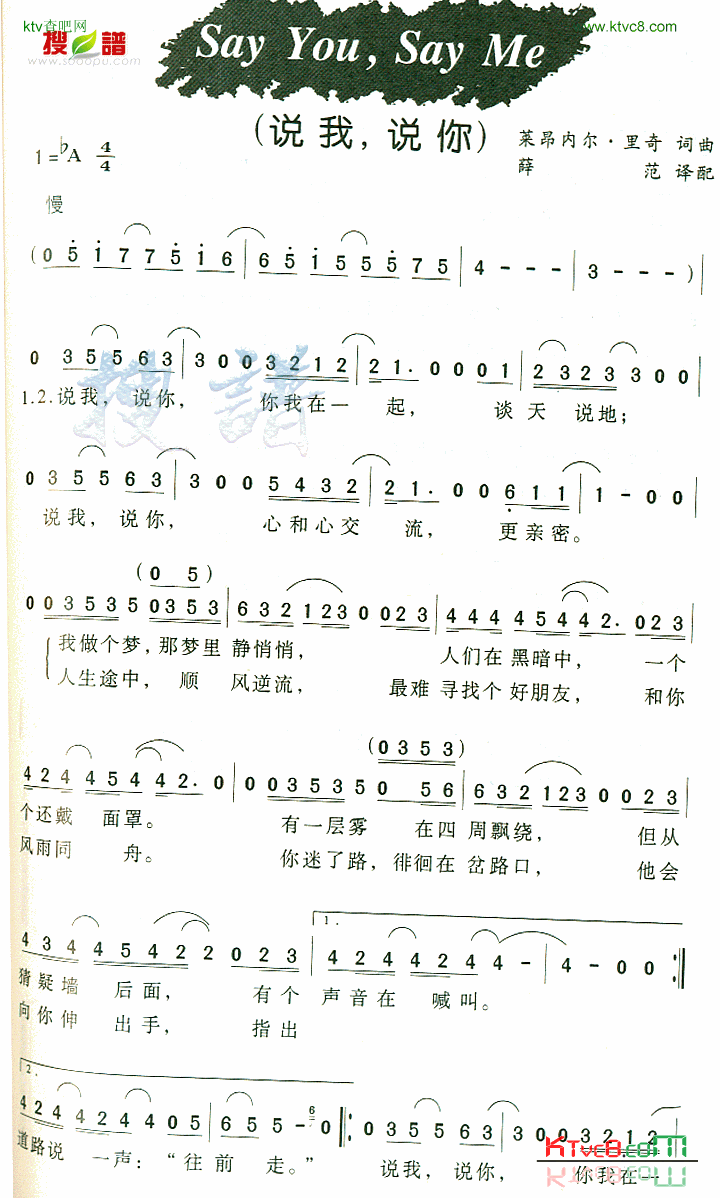 ktv杳吧网
www.ktvc8.com
搜 譜
www.sooopu.com
Say You, Say Me
(说我,说你)
莱昂内尔·里奇 词曲
薛 范 译配
1=♭A 4/4
慢
(0 5 1 7 7 5 1 6 | 6 5 1 5 5 5 7 5 | 4 - - - | 3 - - - )|
0 3 5 5 6 3 | 3 0 0 3 2 1 2 | 2 1. 0 0 0 1 | 2 3 2 3 3 0 0 |
1.2.说我, 说你, 你我在一 起, 谈天 说地;
0 3 5 5 6 3 | 3 0 0 5 4 3 2 | 2 1. 0 0 6 1 1 | 1 - 0 0 |
说我, 说你, 心和心交 流, 更亲密。
(0 5)
0 0 3 5 3 5 0 3 5 3 | 6 3 2 1 2 3 0 0 2 3 | 4 4 4 4 5 4 4 2. 0 2 3 |
我做个梦,那梦里 静悄悄, 人们在 黑暗中, 一个
人生途中, 顺 风逆流, 最难 寻找个 好朋友, 和你
(0 3 5 3)
4 2 4 4 5 4 4 2. 0 | 0 0 3 5 3 5 0 5 6 | 6 3 2 1 2 3 0 0 2 3 |
个还戴 面罩。 有一层雾 在四 周飘绕, 但从
风雨同 舟。 你迷了路, 徘徊在 岔路口, 他会
1.
4 3 4 4 5 4 2 2 0 2 3 | 4 2 4 4 2 4 4 - | 4 - 0 0 :|
猜疑墙 后面, 有个 声音在 喊叫。
向你伸 出手, 指出
2.
4 2 4 4 2 4 4 0 5 | 6 5 5 - 6 0 :| 0 3 5 5 6 3 | 3 0 0 3 2 1 2
道路说 一声:“往前 走。” 说我, 说你, 你我在一
KTvc8.com